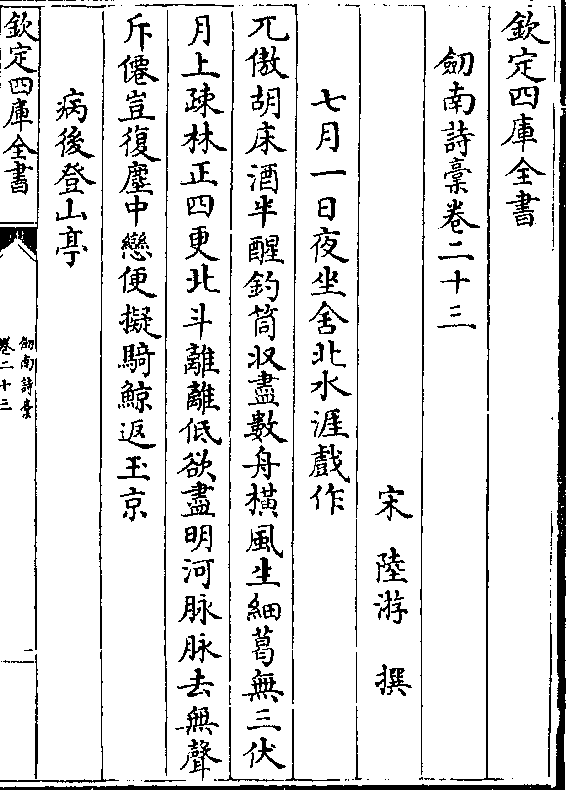 欽定四庫全書
劒南詩稾卷二十三
宋 陸游 撰
七月一日夜坐舍北水涯戲作
兀傲胡床酒半醒釣筒收盡數舟橫風生細葛無三伏
月上疎林正四更北斗離離低欲盡明河脉脉去無聲
斥僊豈復塵中戀便擬騎鯨返玉京
病後登山亭
欽定四庫全書
劒南詩稾
卷二十三
一